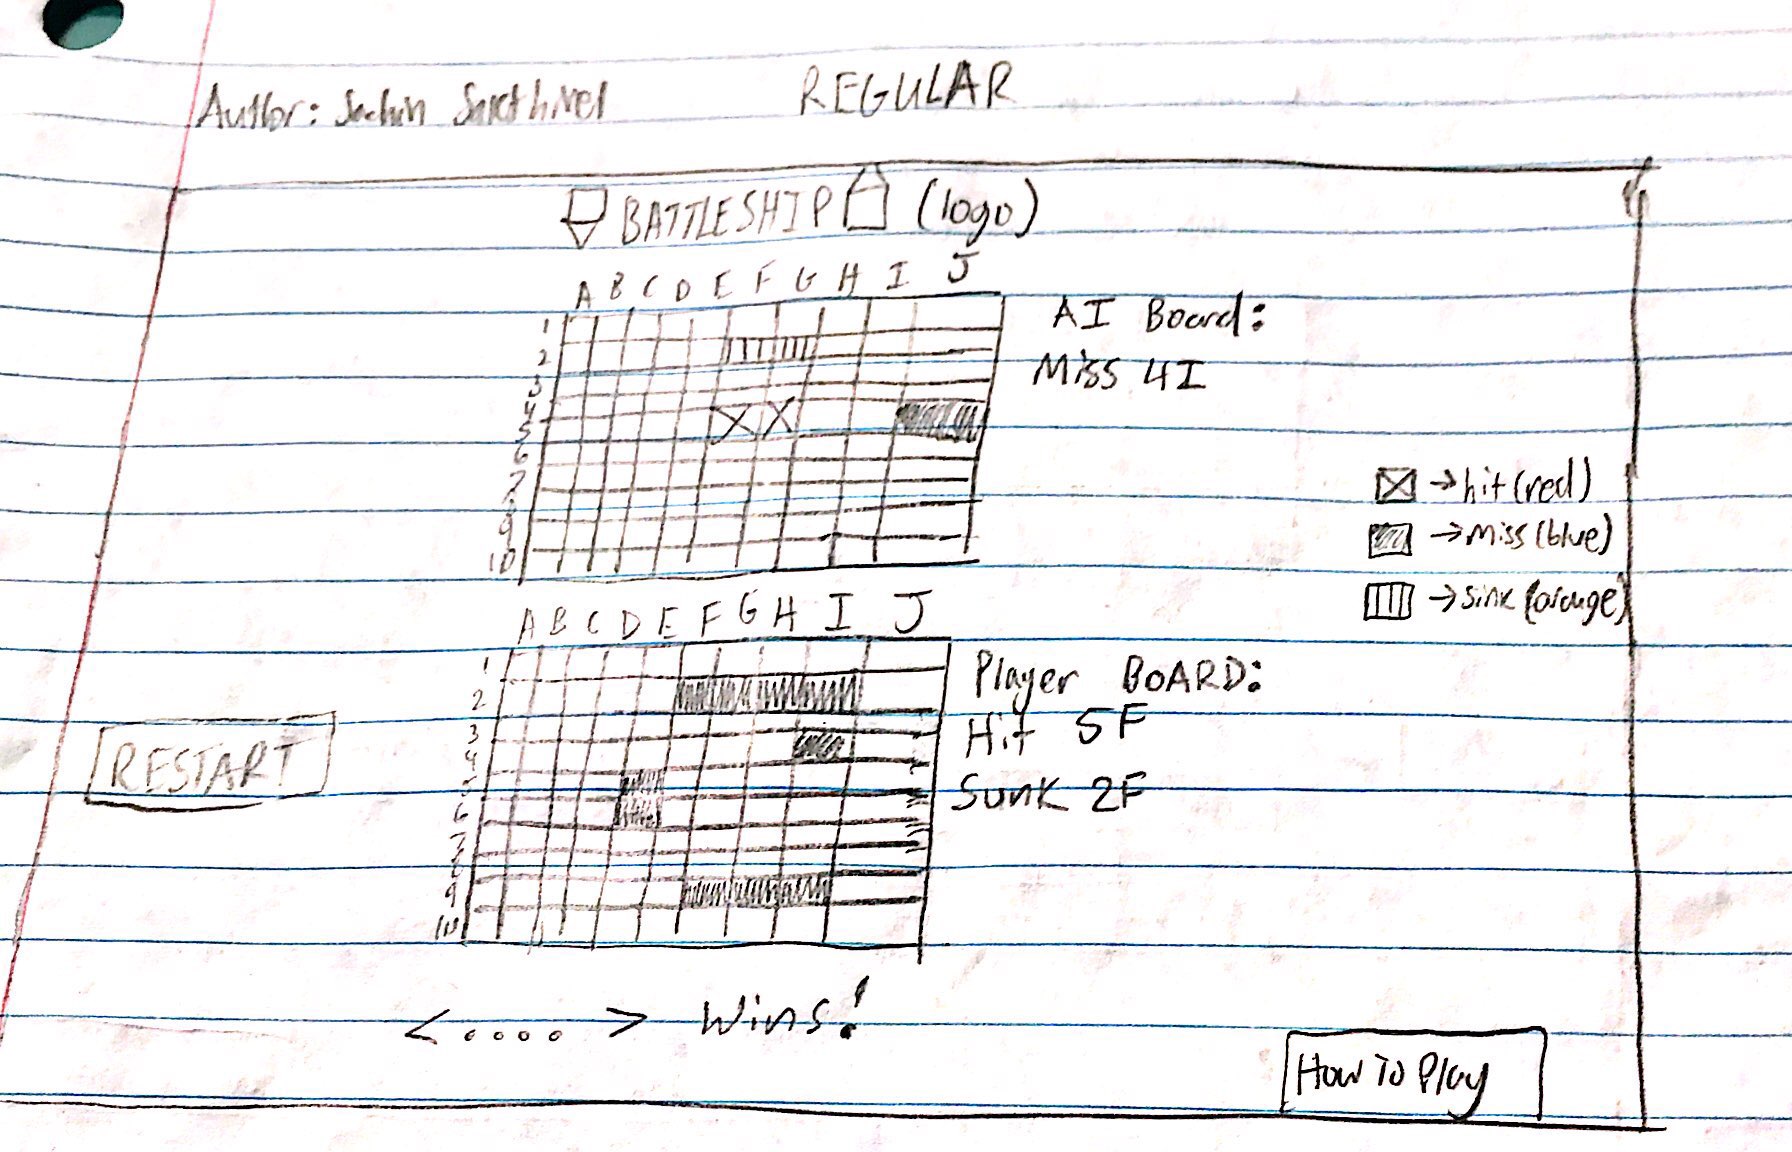 Author: Sachin Sakthivel
REGULAR
BATTLESHIP (logo)
A B C D E F G H I J
1
2
3
4
5
6
7
8
9
10
AI Board:
Miss 4I
→ hit (red)
→ Miss (blue)
→ sink (orange)
A B C D E F G H I J
1
2
3
4
5
6
7
8
9
10
Player BOARD:
Hit 5F
Sunk 2F
RESTART
< .... > Wins!
How To Play